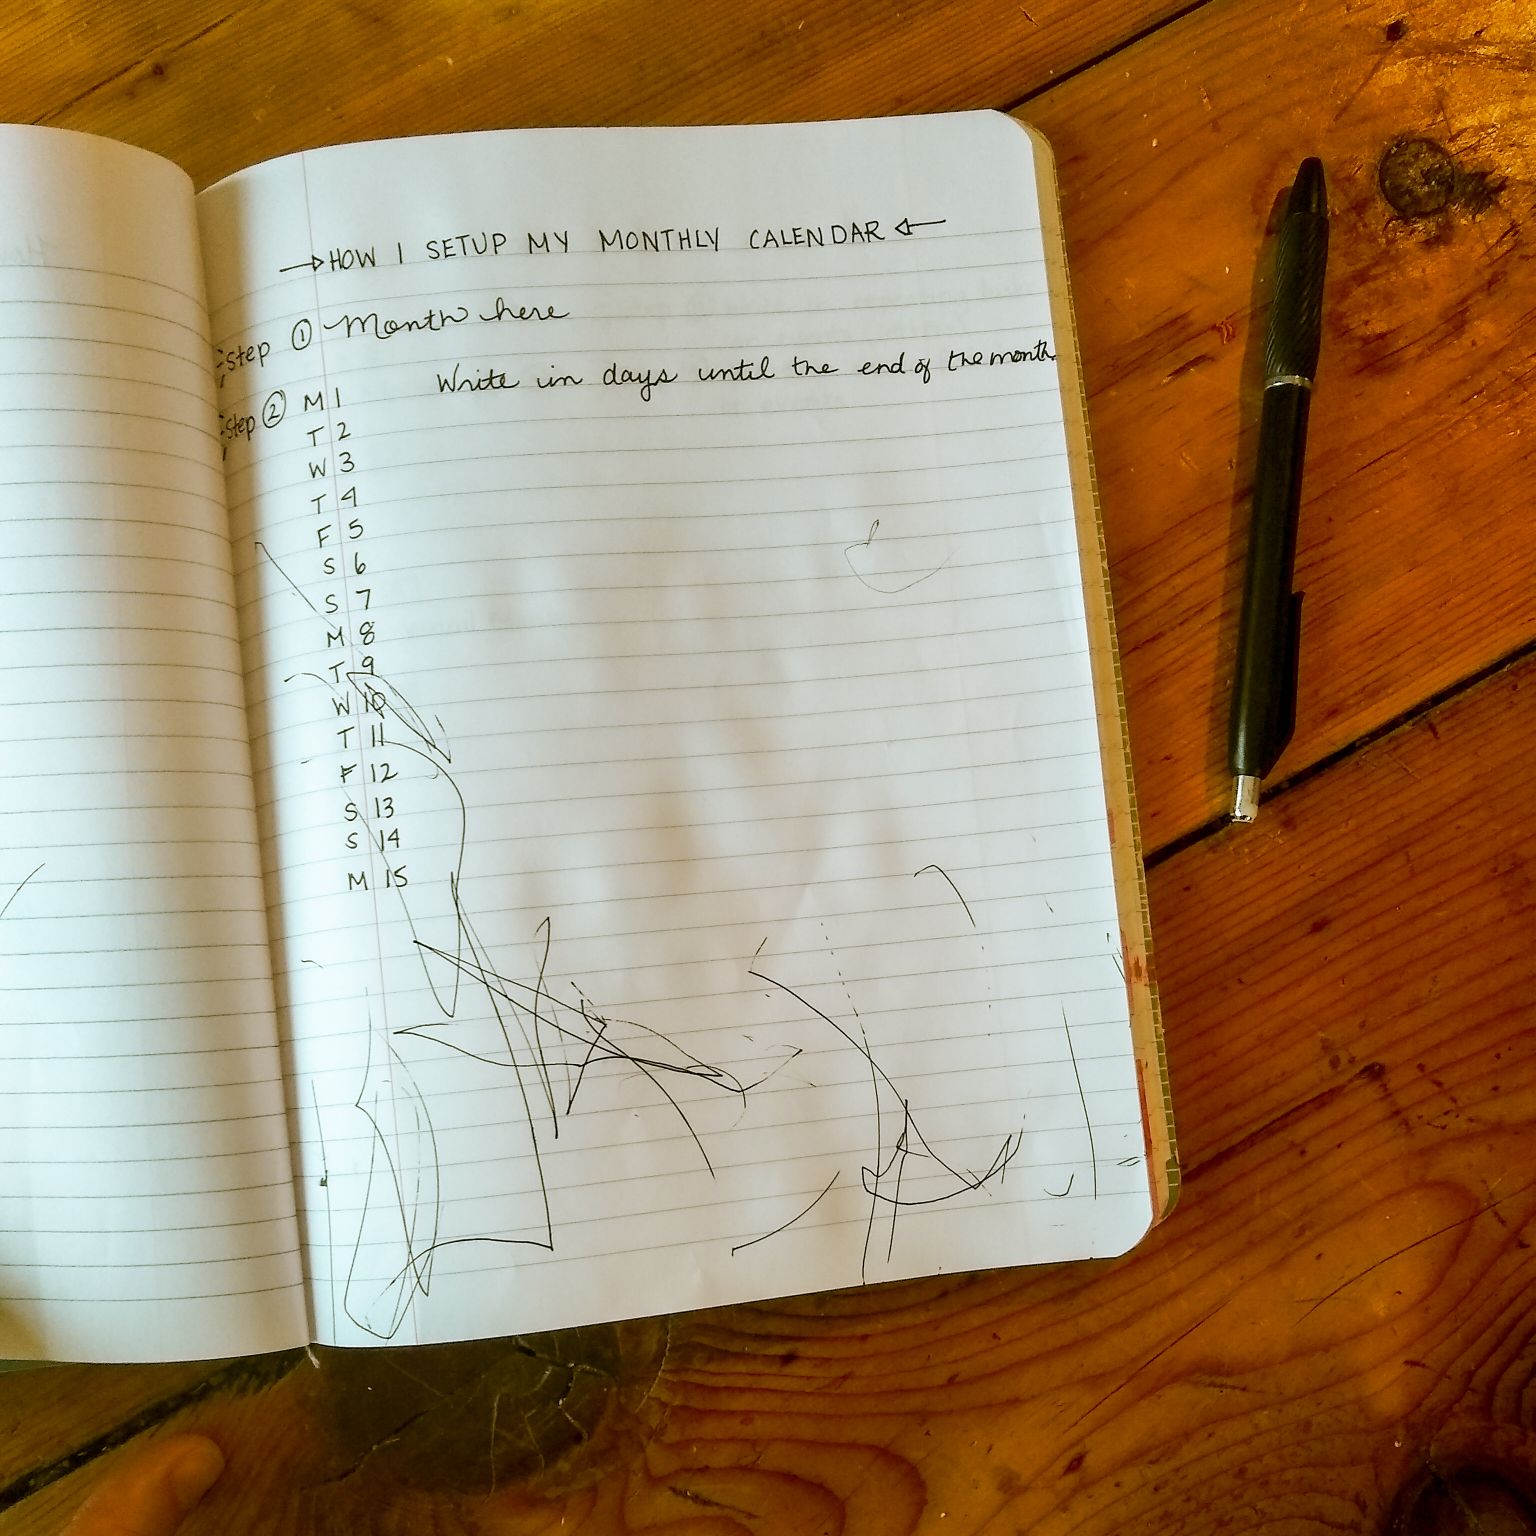 HOW I SETUP MY MONTHLY CALENDAR
Step 1 Month here
Write in days until the end of the month
Step 2 M 1
T 2
W 3
T 4
F 5
S 6
S 7
M 8
T 9
W 10
T 11
F 12
S 13
S 14
M 15